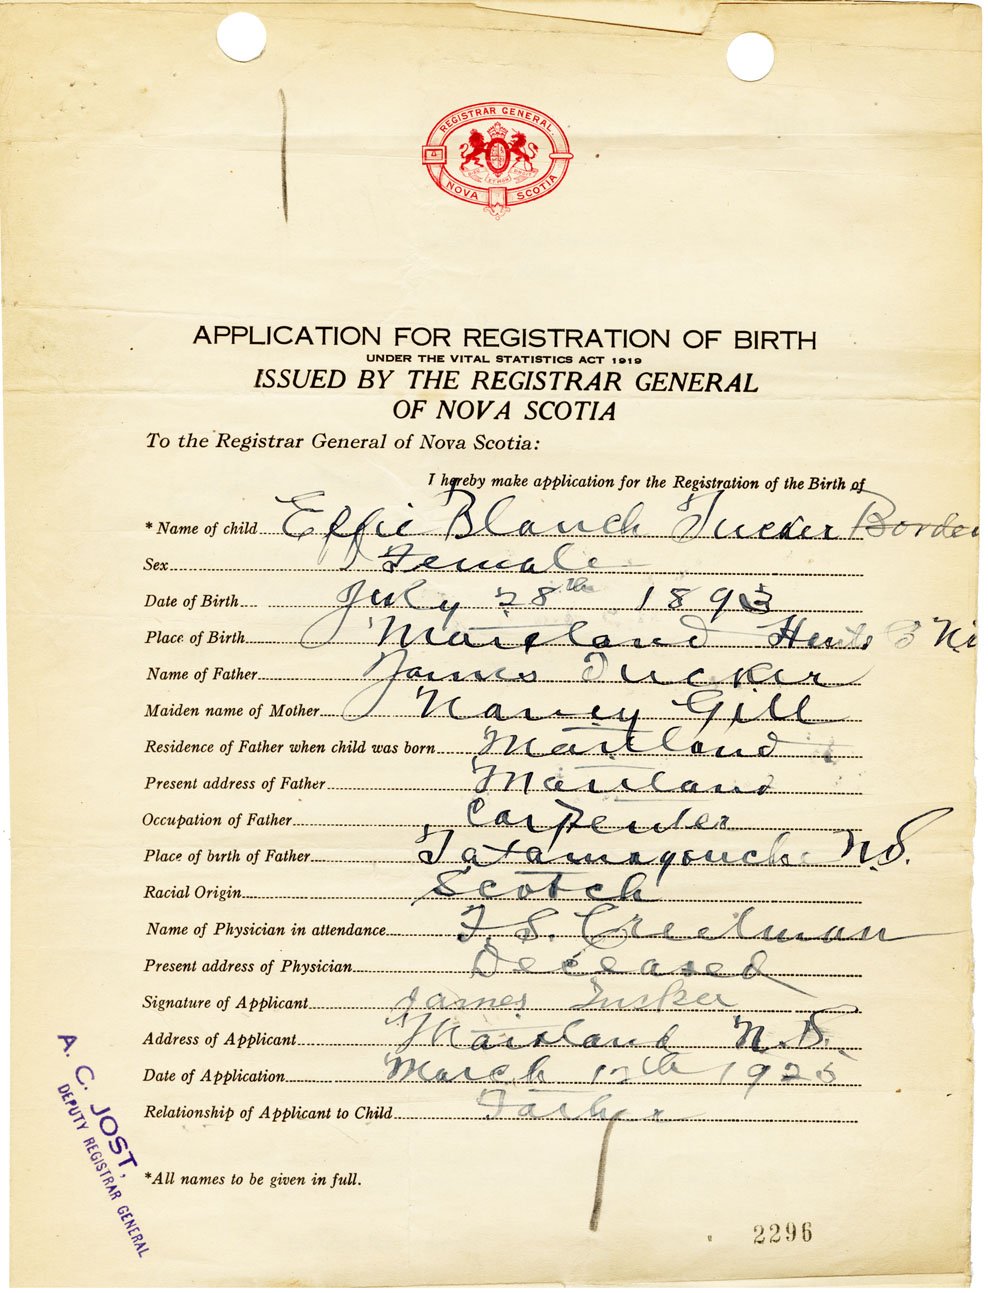 REGISTRAR GENERAL
NOVA SCOTIA
APPLICATION FOR REGISTRATION OF BIRTH
UNDER THE VITAL STATISTICS ACT 1919
ISSUED BY THE REGISTRAR GENERAL
OF NOVA SCOTIA
To the Registrar General of Nova Scotia:
I hereby make application for the Registration of the Birth of
* Name of child Effie Blanch Tucker Borden
Sex Female
Date of Birth July 28th 1893
Place of Birth Maitland Hants Co
Name of Father James Tucker
Maiden name of Mother Nancy Gill
Residence of Father when child was born Maitland
Present address of Father Maitland
Occupation of Father Carpenter
Place of birth of Father Tatamagouche N.S.
Racial Origin Scotch
Name of Physician in attendance F. S. Creelman
Present address of Physician Deceased
Signature of Applicant James Tucker
Address of Applicant Maitland N.S.
Date of Application March 12th 1925
Relationship of Applicant to Child Father
A. C. JOST,
DEPUTY REGISTRAR GENERAL
*All names to be given in full.
2296